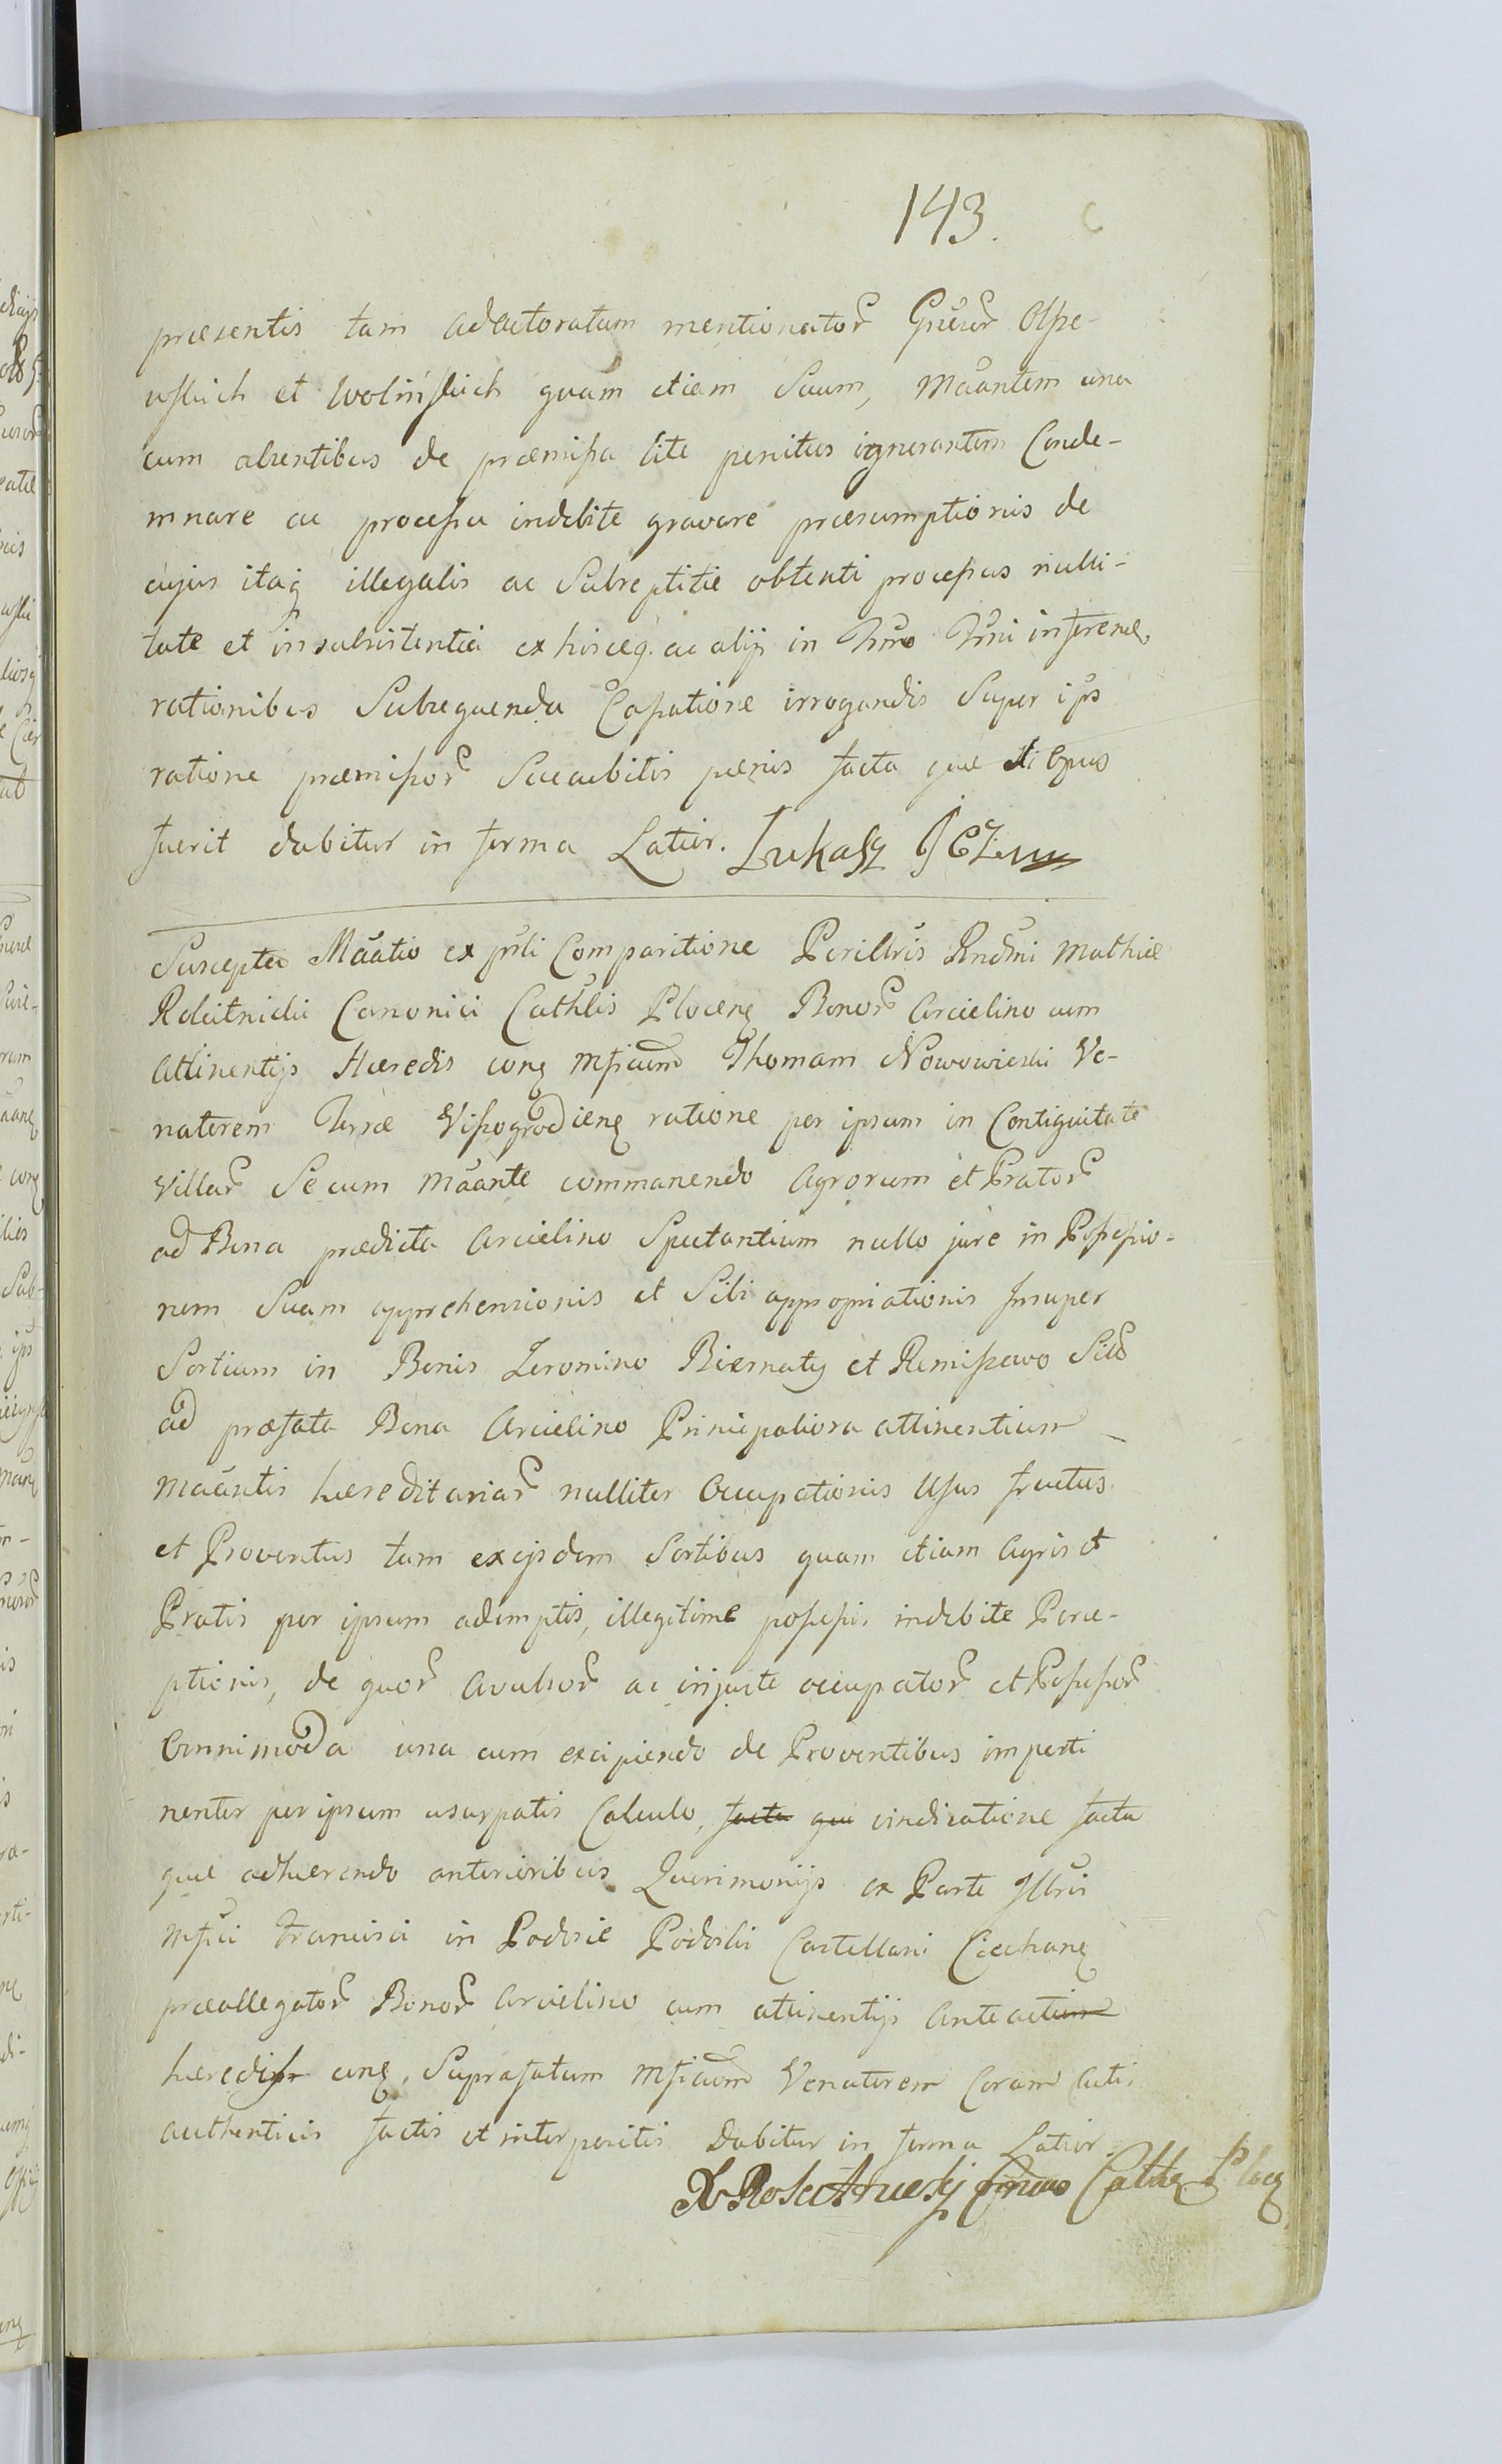 143.
præsentis tam adactoratum mentionator Gnrur Olsze-
wskich et Wolińskich quam etiam Suum, Māantem una
cum absentibus de præmissa lite penitus ignorantem Conde-
mnare ac processu indebite gravare præsumptionis de
cujus itaq illegalis ac Subreptitie obtenti processus nulli-
tate et insubsistentia ex hisceq. ac alijs in Trmo Trni inferend.
rationibus Subsequenda Cassatione irrogandis Super ips
ratione præmissor Succubitis pænis facta quæ si Opus
fuerit dabitur in forma Latior. Lukasz
Suscepta Māatio ex pnti Comparitione Perillris Rndmi Mathiæ
Canonici Cathlis Plocens Bonor Arcielino cum
Attinentijs Hæredis cong Mficum Thomam Nowowieski Ve-
natorem Terræ Vissogrodiens ratione per ipsum in Contiguitate
Villar Se cum Māante commanendo Agrorum et Prator
ad Bona prædicta Arcielino Spectantium nullo jure in Possessio-
nem Suam apprehensionis et Sibi appropriationis Insuper
Sortium in Bonis Jeromino Biernaty et Remiszewo Sito
ad præfata Bona Arcielino Principaliora attinentium
Māantis hæreditariar nulliter Occupationis Usus fructus
et Proventus tam ex ejsdem Sortibus quam etiam Agris et
Pratis per ipsum ademptis, illegitime possessis indebite Perce-
ptionis, de quor Avulsor ac injuste occupator et Possessor
Omnimoda una cum excipiendo de Proventibus imperti
nenter per ipsum usurpatis Calculo, facta qui vindicatione facta
quæ adhærendo anterioribus Querimonijs ex Parte Illris
Mfici Francisci in Podosie Podoski Castellani Ciechans
præallegator Bonor Arcielino cum attinentijs Ante actum
hæredis cong. Suprafatum Mficum Venatorem Coram Actis
authenticis factis et interpositis Dabitur in forma Latior.